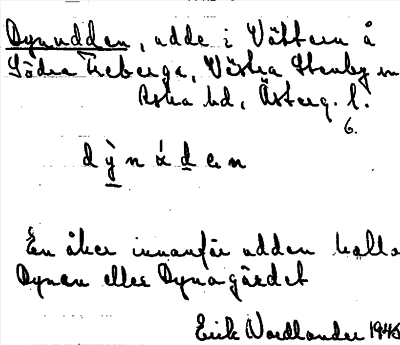 Dynudden, udde i Vättern å
Södra Freberga, Västra Stenby sn
Aska hd, Österg. l.
6.
dỳnúden
En åker innanför udden kallas
Dynan eller Dynagärdet
Erik Nordlander 1945